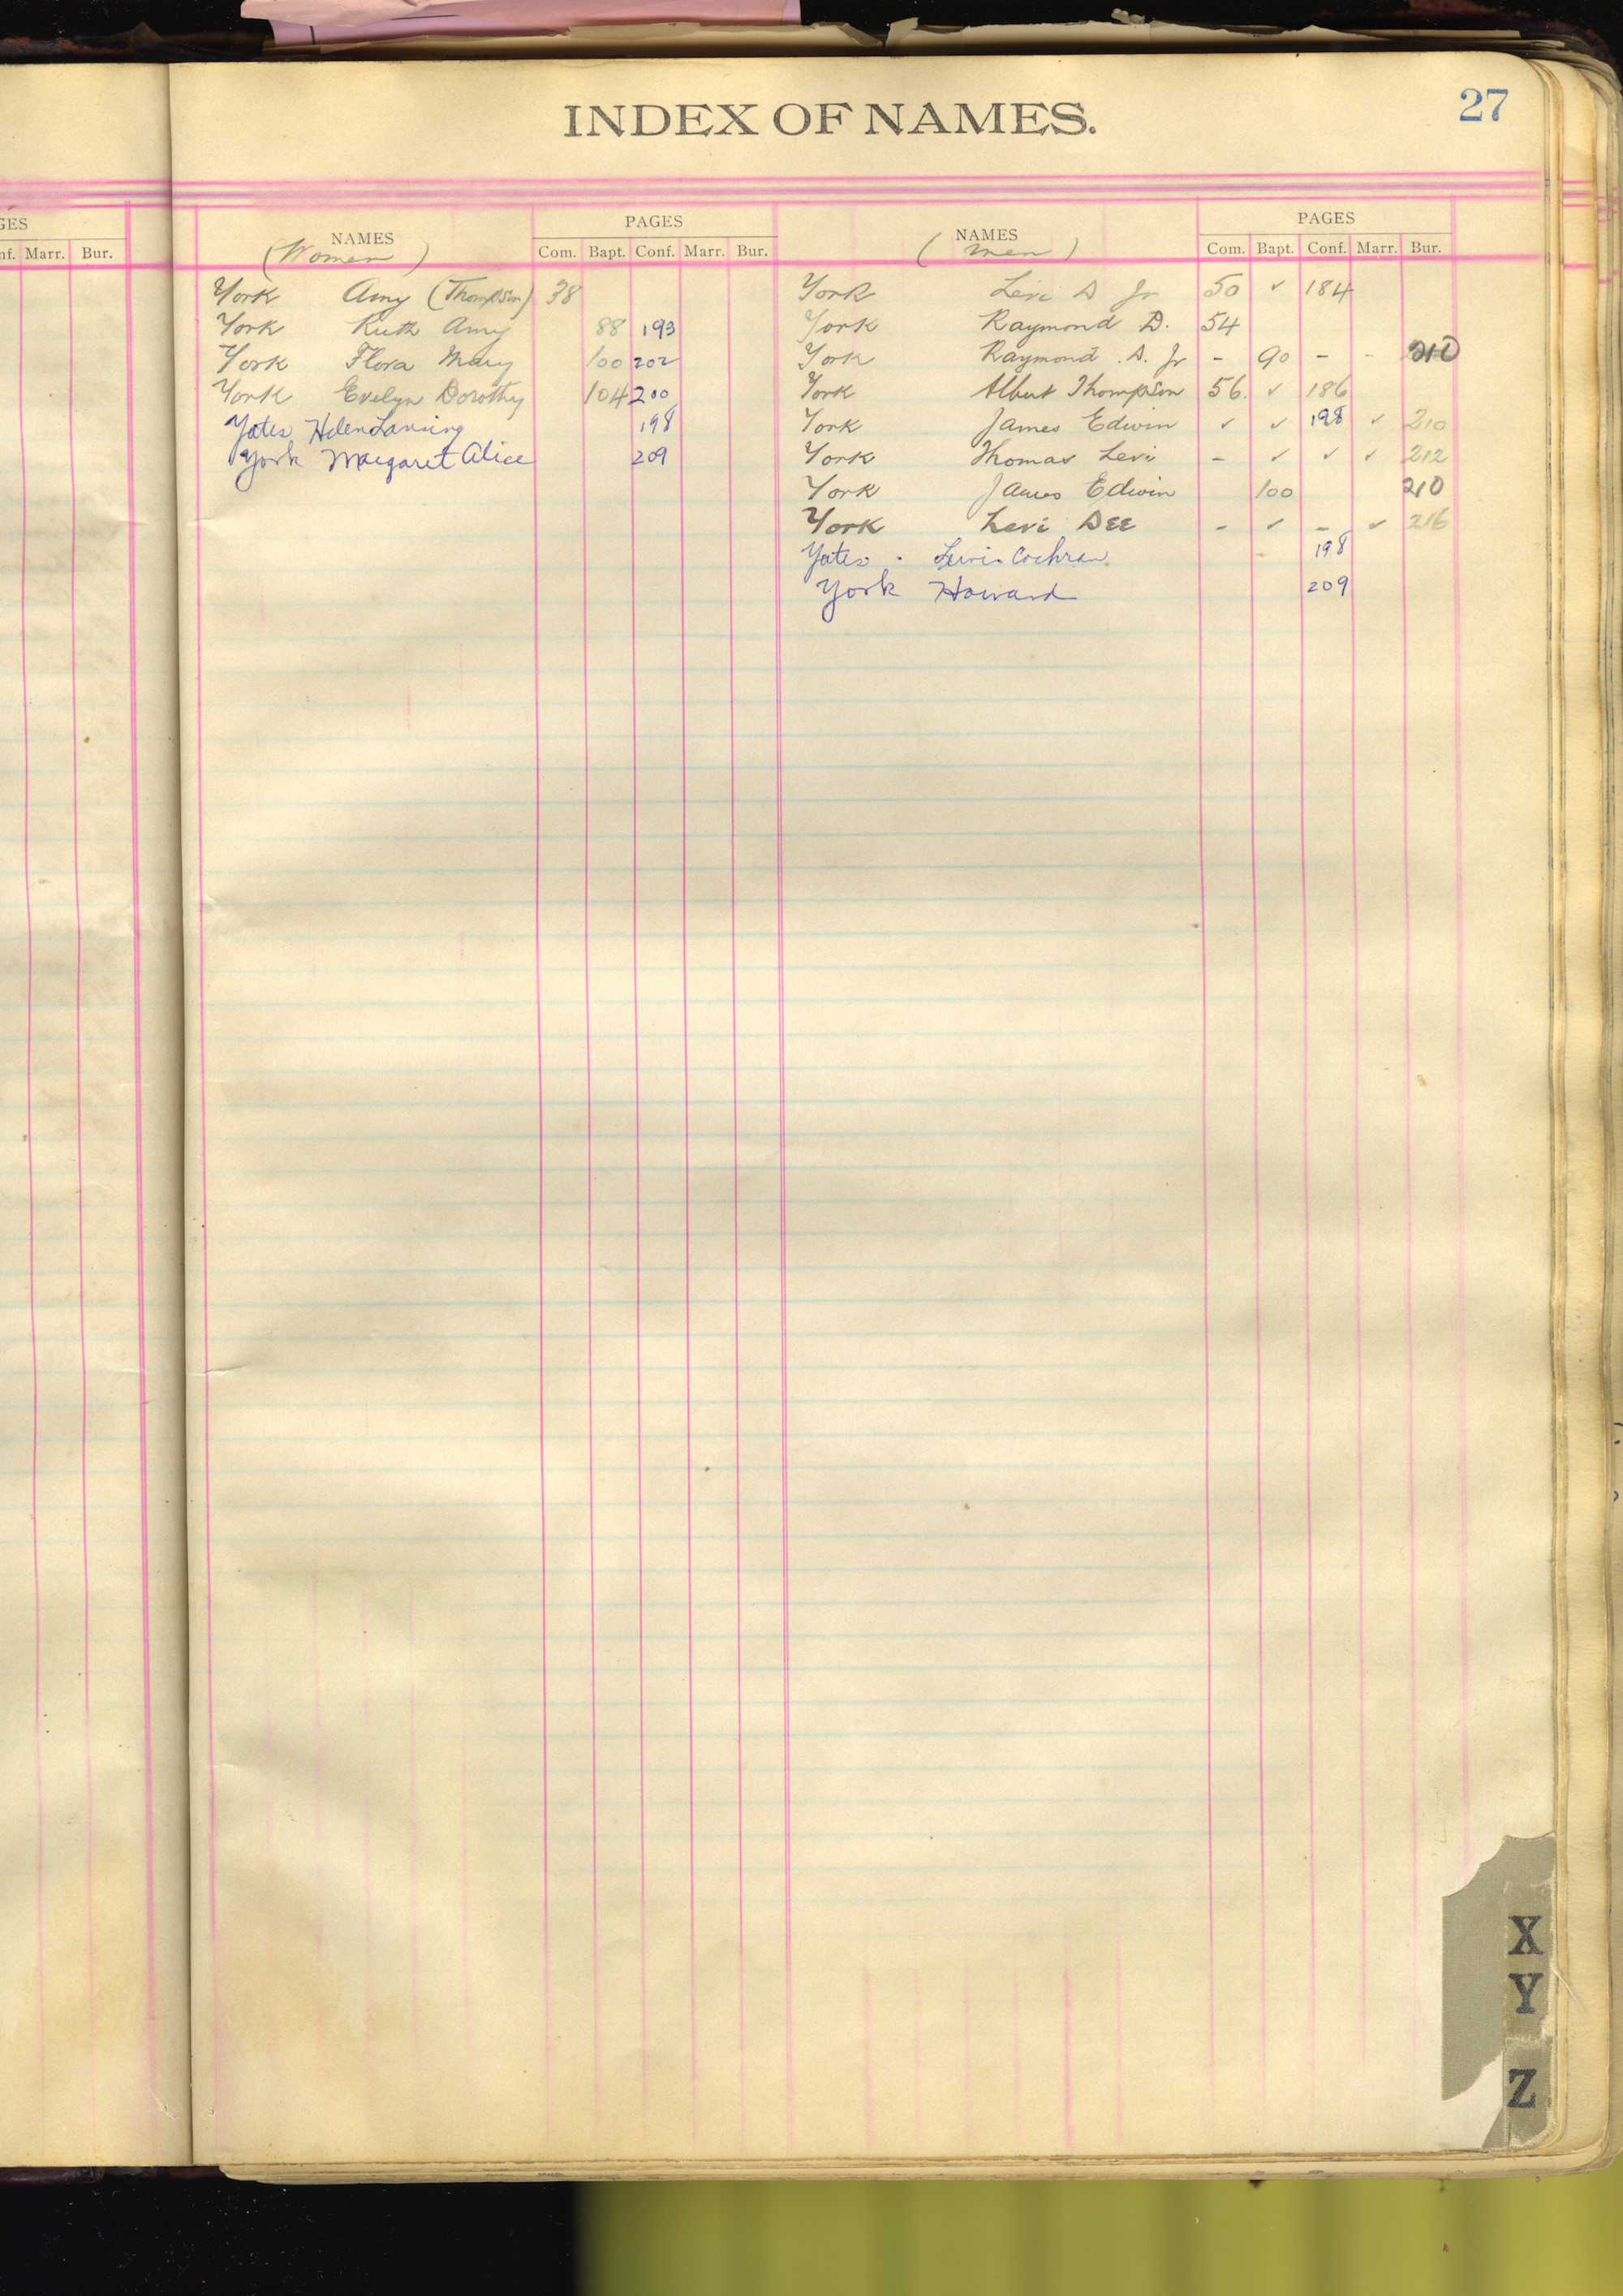 INDEX OF NAMES.
27
GES
nf. Marr. Bur.
NAMES
(Women)
PAGES
Com. Bapt. Conf. Marr. Bur.
York Amy (Thompson) 38
York Ruth Amy 88 193
York Flora Mary 100 202
York Evelyn Dorothy 104 200
Yates Helen Lansing 198
York Margaret Alice 209
NAMES
(Men)
PAGES
Com. Bapt. Conf. Marr. Bur.
York Levi D Jr 50 ✓ 184
York Raymond D. 54
York Raymond D. Jr - 90 - - 210
York Albert Thompson 56. ✓ 186
York James Edwin ✓ ✓ 198 ✓ 210
York Thomas Levi - ✓ ✓ ✓ 212
York James Edwin 100 210
York Levi DEE - ✓ - ✓ 216
Yates Lewis Cochran 198
York Howard 209
X
Y
Z